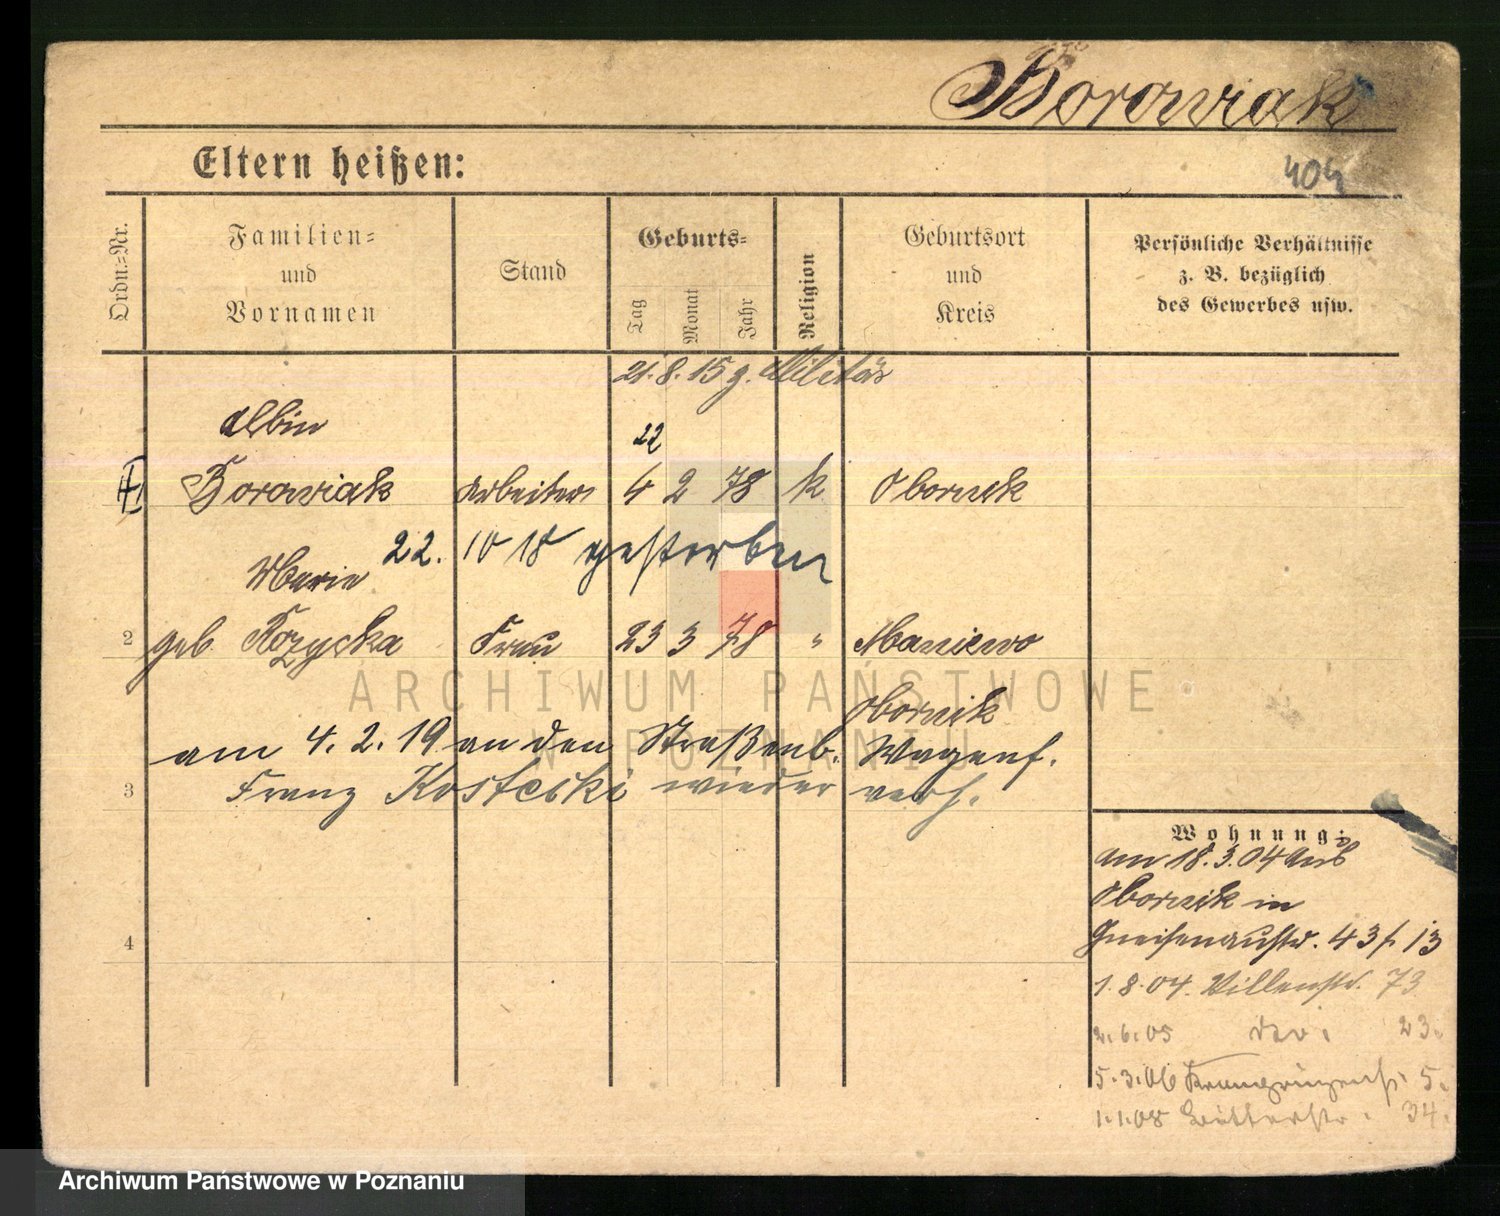 Borowiak
Eltern heißen:
404
Ordn.=Nr.
Familien=
und
Vornamen
Stand
Geburts=
Tag
Monat
Jahr
Religion
Geburtsort
und
Kreis
Persönliche Verhältnisse
z. B. bezüglich
des Gewerbes usw.
21. 8. 15 z. Militär
Albin
22
Borowiak Arbeiter 4 2 78 k Obornik
22. 10 18 gestorben
Marie
2 geb. Kozycka Frau 23 3 78 " Maniewo
Obornik
am 4. 2. 19 an den Straßenb. Wagenf.
3 Franz Kostecki wieder verh.
4
Wohnung:
am 18. 3. 04 aus
Obornik in
Gneisenaustr. 43 / 13
1. 8. 04. Villenstr. 73
2. 6. 05 23.
5. 3. 06 Kronprinzenstr. 5.
1. 1. 08 34.
ARCHIWUM PAŃSTWOWE
W POZNANIU
Archiwum Państwowe w Poznaniu